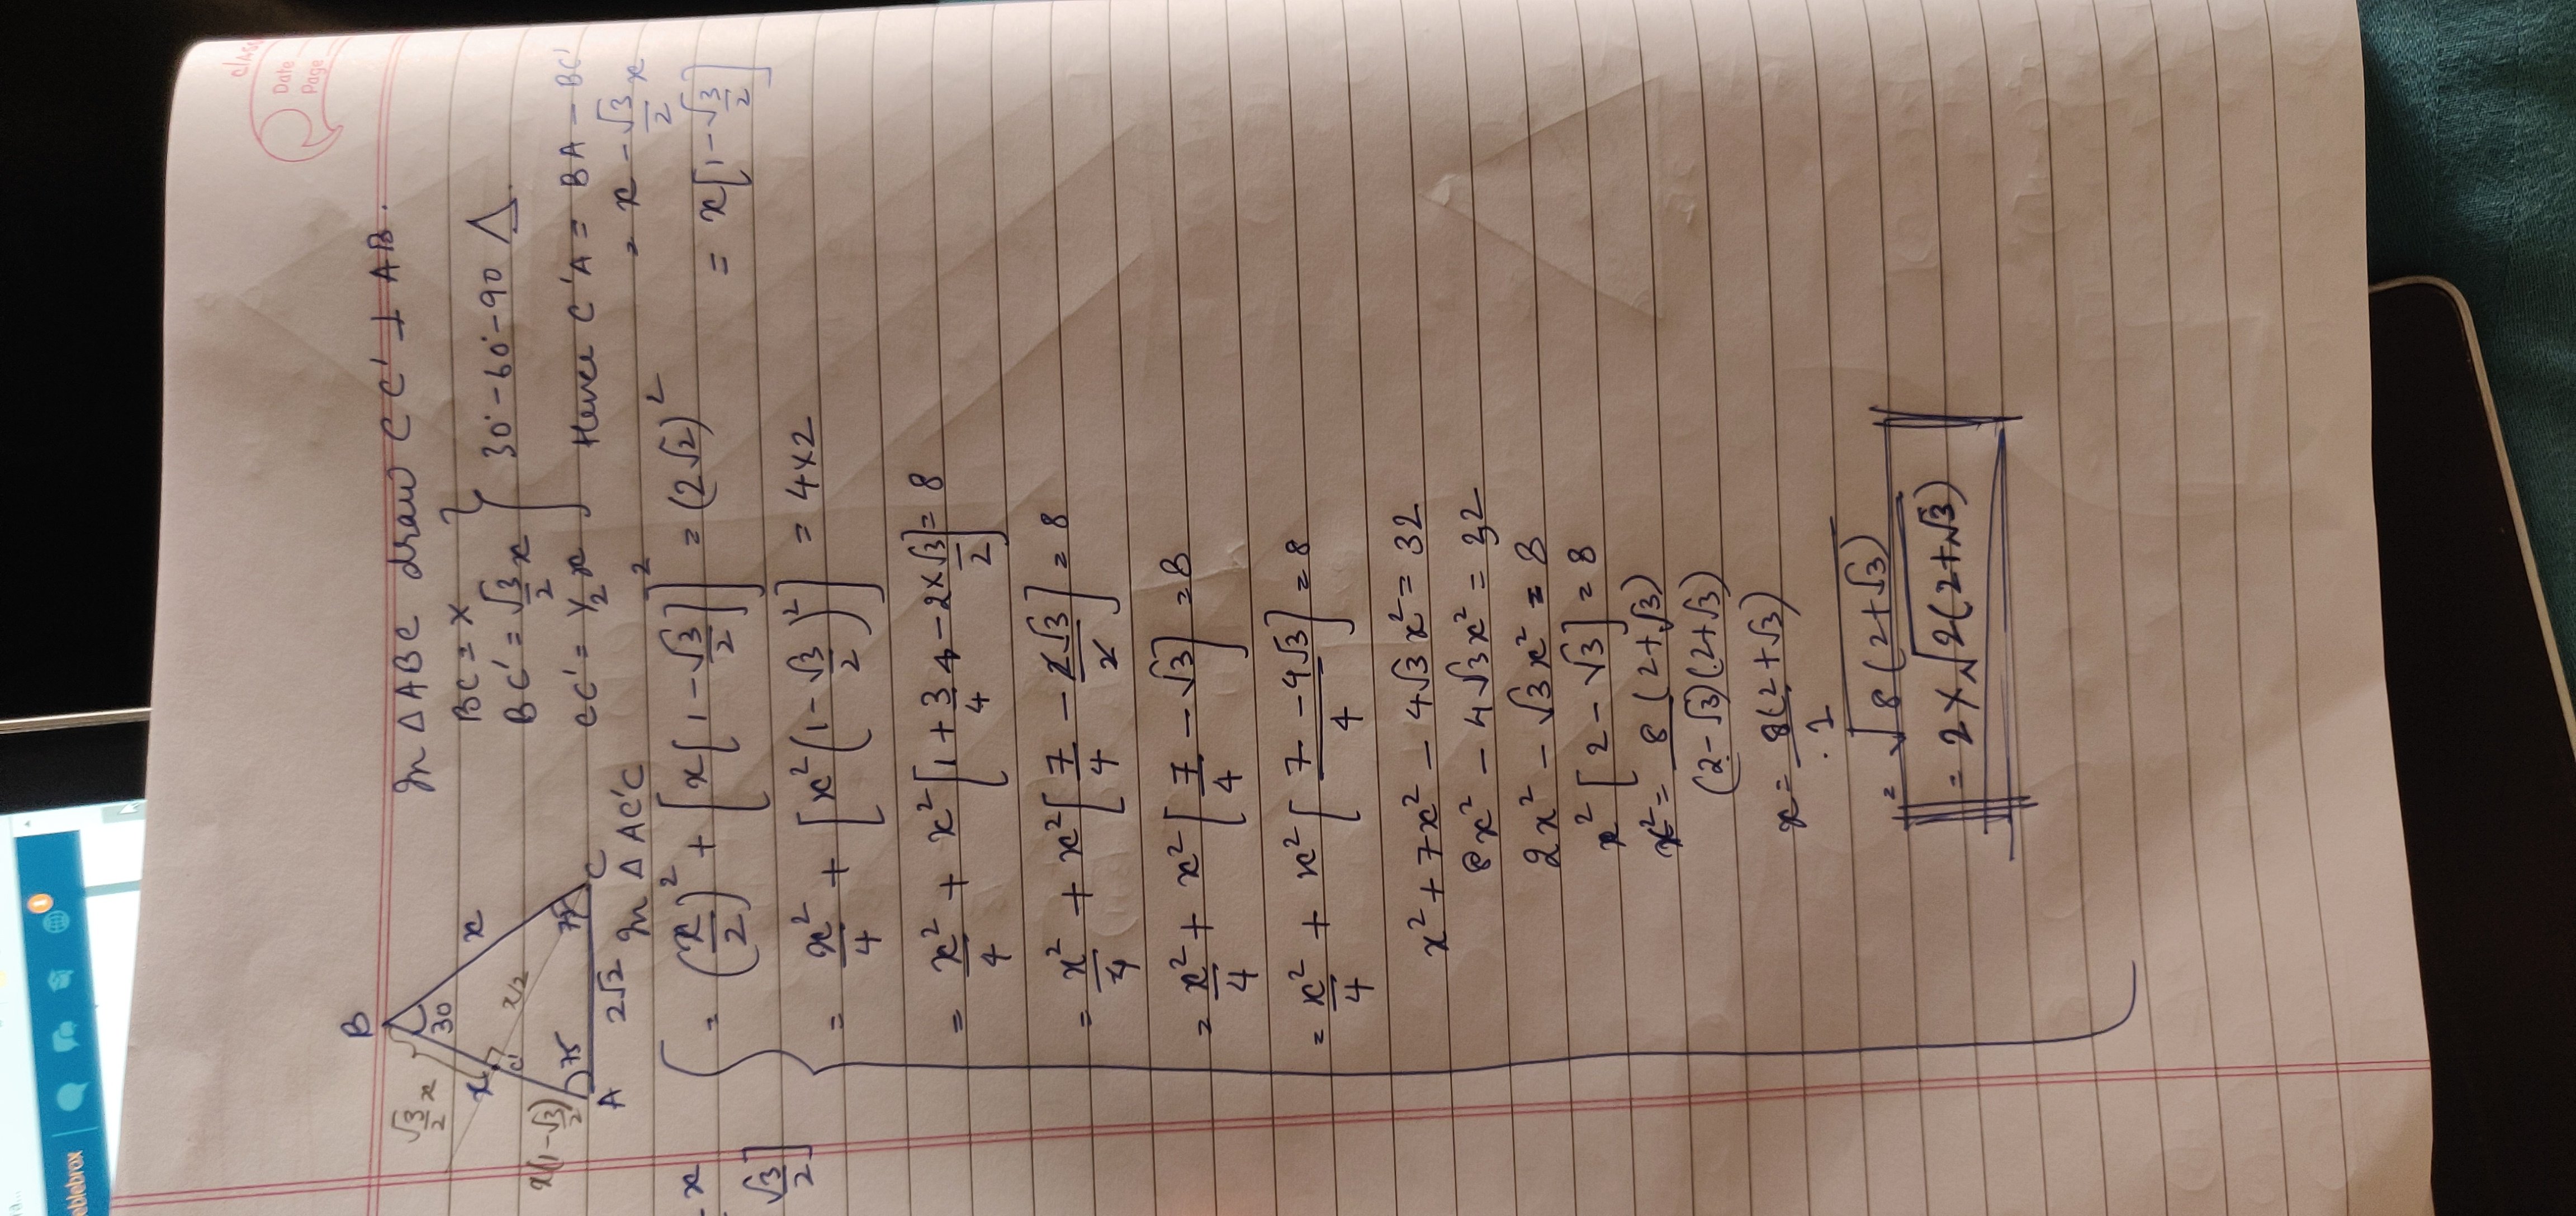 eblebrox
Class
Date
Page
B
√3/2 x
30
x
x
C'
x/2
x(1-√3/2)
75
75
A
2√2
C
In △ABC draw CC' ⊥ AB.
BC = x
BC' = √3/2 x } 30°-60°-90 △.
CC' = 1/2 x
Hence C'A = BA - BC'
= x - √3/2 x
= x[1-√3/2]
In △AC'C
= (x/2)² + [x[1-√3/2]]² = (2√2)²
= x²/4 + [x²(1-√3/2)²] = 4×2
= x²/4 + x²[1+3/4-2×√3/2] = 8
= x²/4 + x²[7/4 - 2√3/2] = 8
= x²/4 + x²[7/4 - √3] = 8
= x²/4 + x²[7-4√3/4] = 8
x² + 7x² - 4√3x² = 32
8x² - 4√3x² = 32
2x² - √3x² = 8
x²[2-√3] = 8
x² = 8(2+√3)/(2-√3)(2+√3)
x = 8(2+√3)/1
= √8(2+√3)
= 2×√2(2+√3)
- x
√3/2]